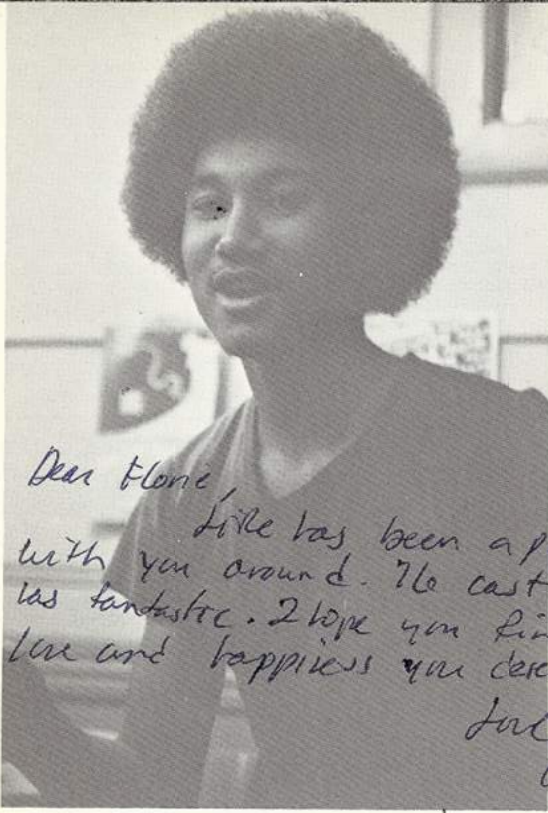 Dear Florie,
Life has been a p
with you around. The cast
was fantastic. I hope you fin
love and happiness you dese
Love